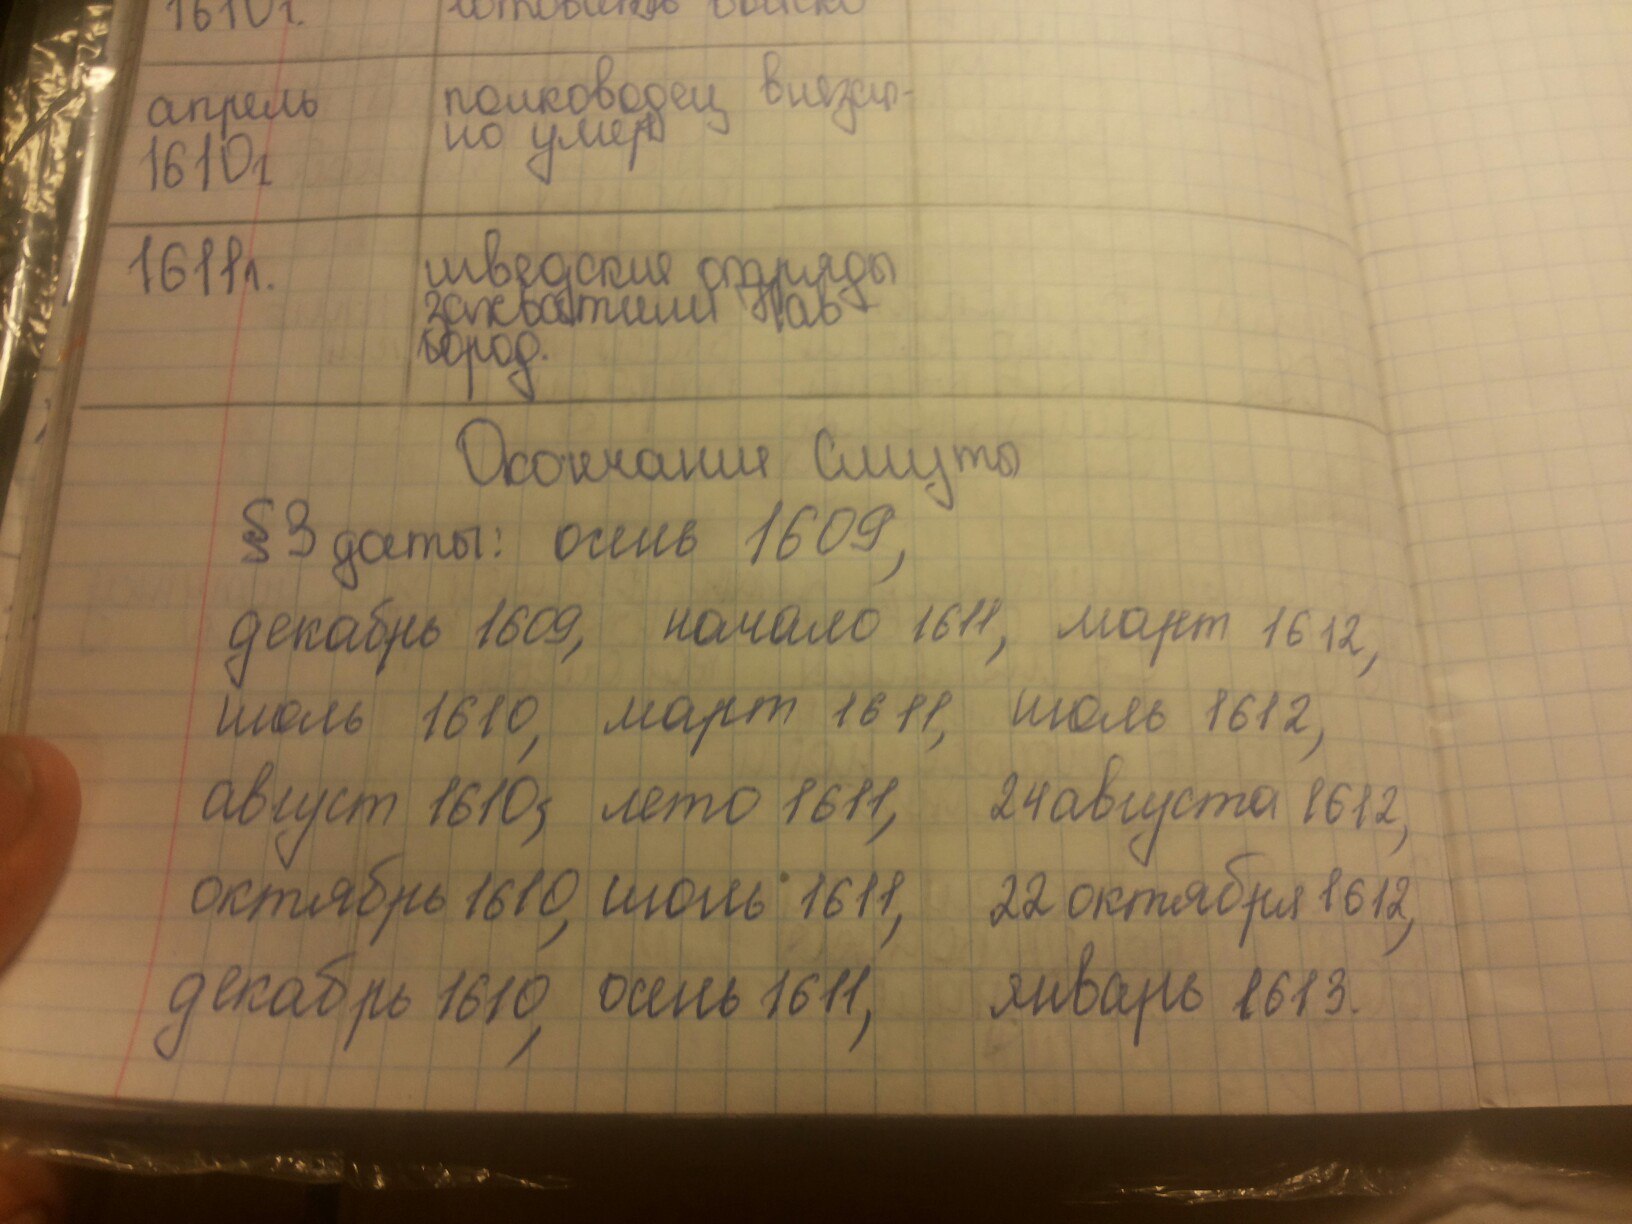 1610г. готовить войско
апрель полководец внезап-
1610г но умер
1611г. шведские отряды
захватили Нав
город.
Окончание Смуты
§3 даты: осень 1609,
декабрь 1609, начало 1611, март 1612,
июль 1610, март 1611, июль 1612,
август 1610, лето 1611, 24 августа 1612,
октябрь 1610, июнь 1611, 22 октября 1612,
декабрь 1610, осень 1611, январь 1613.